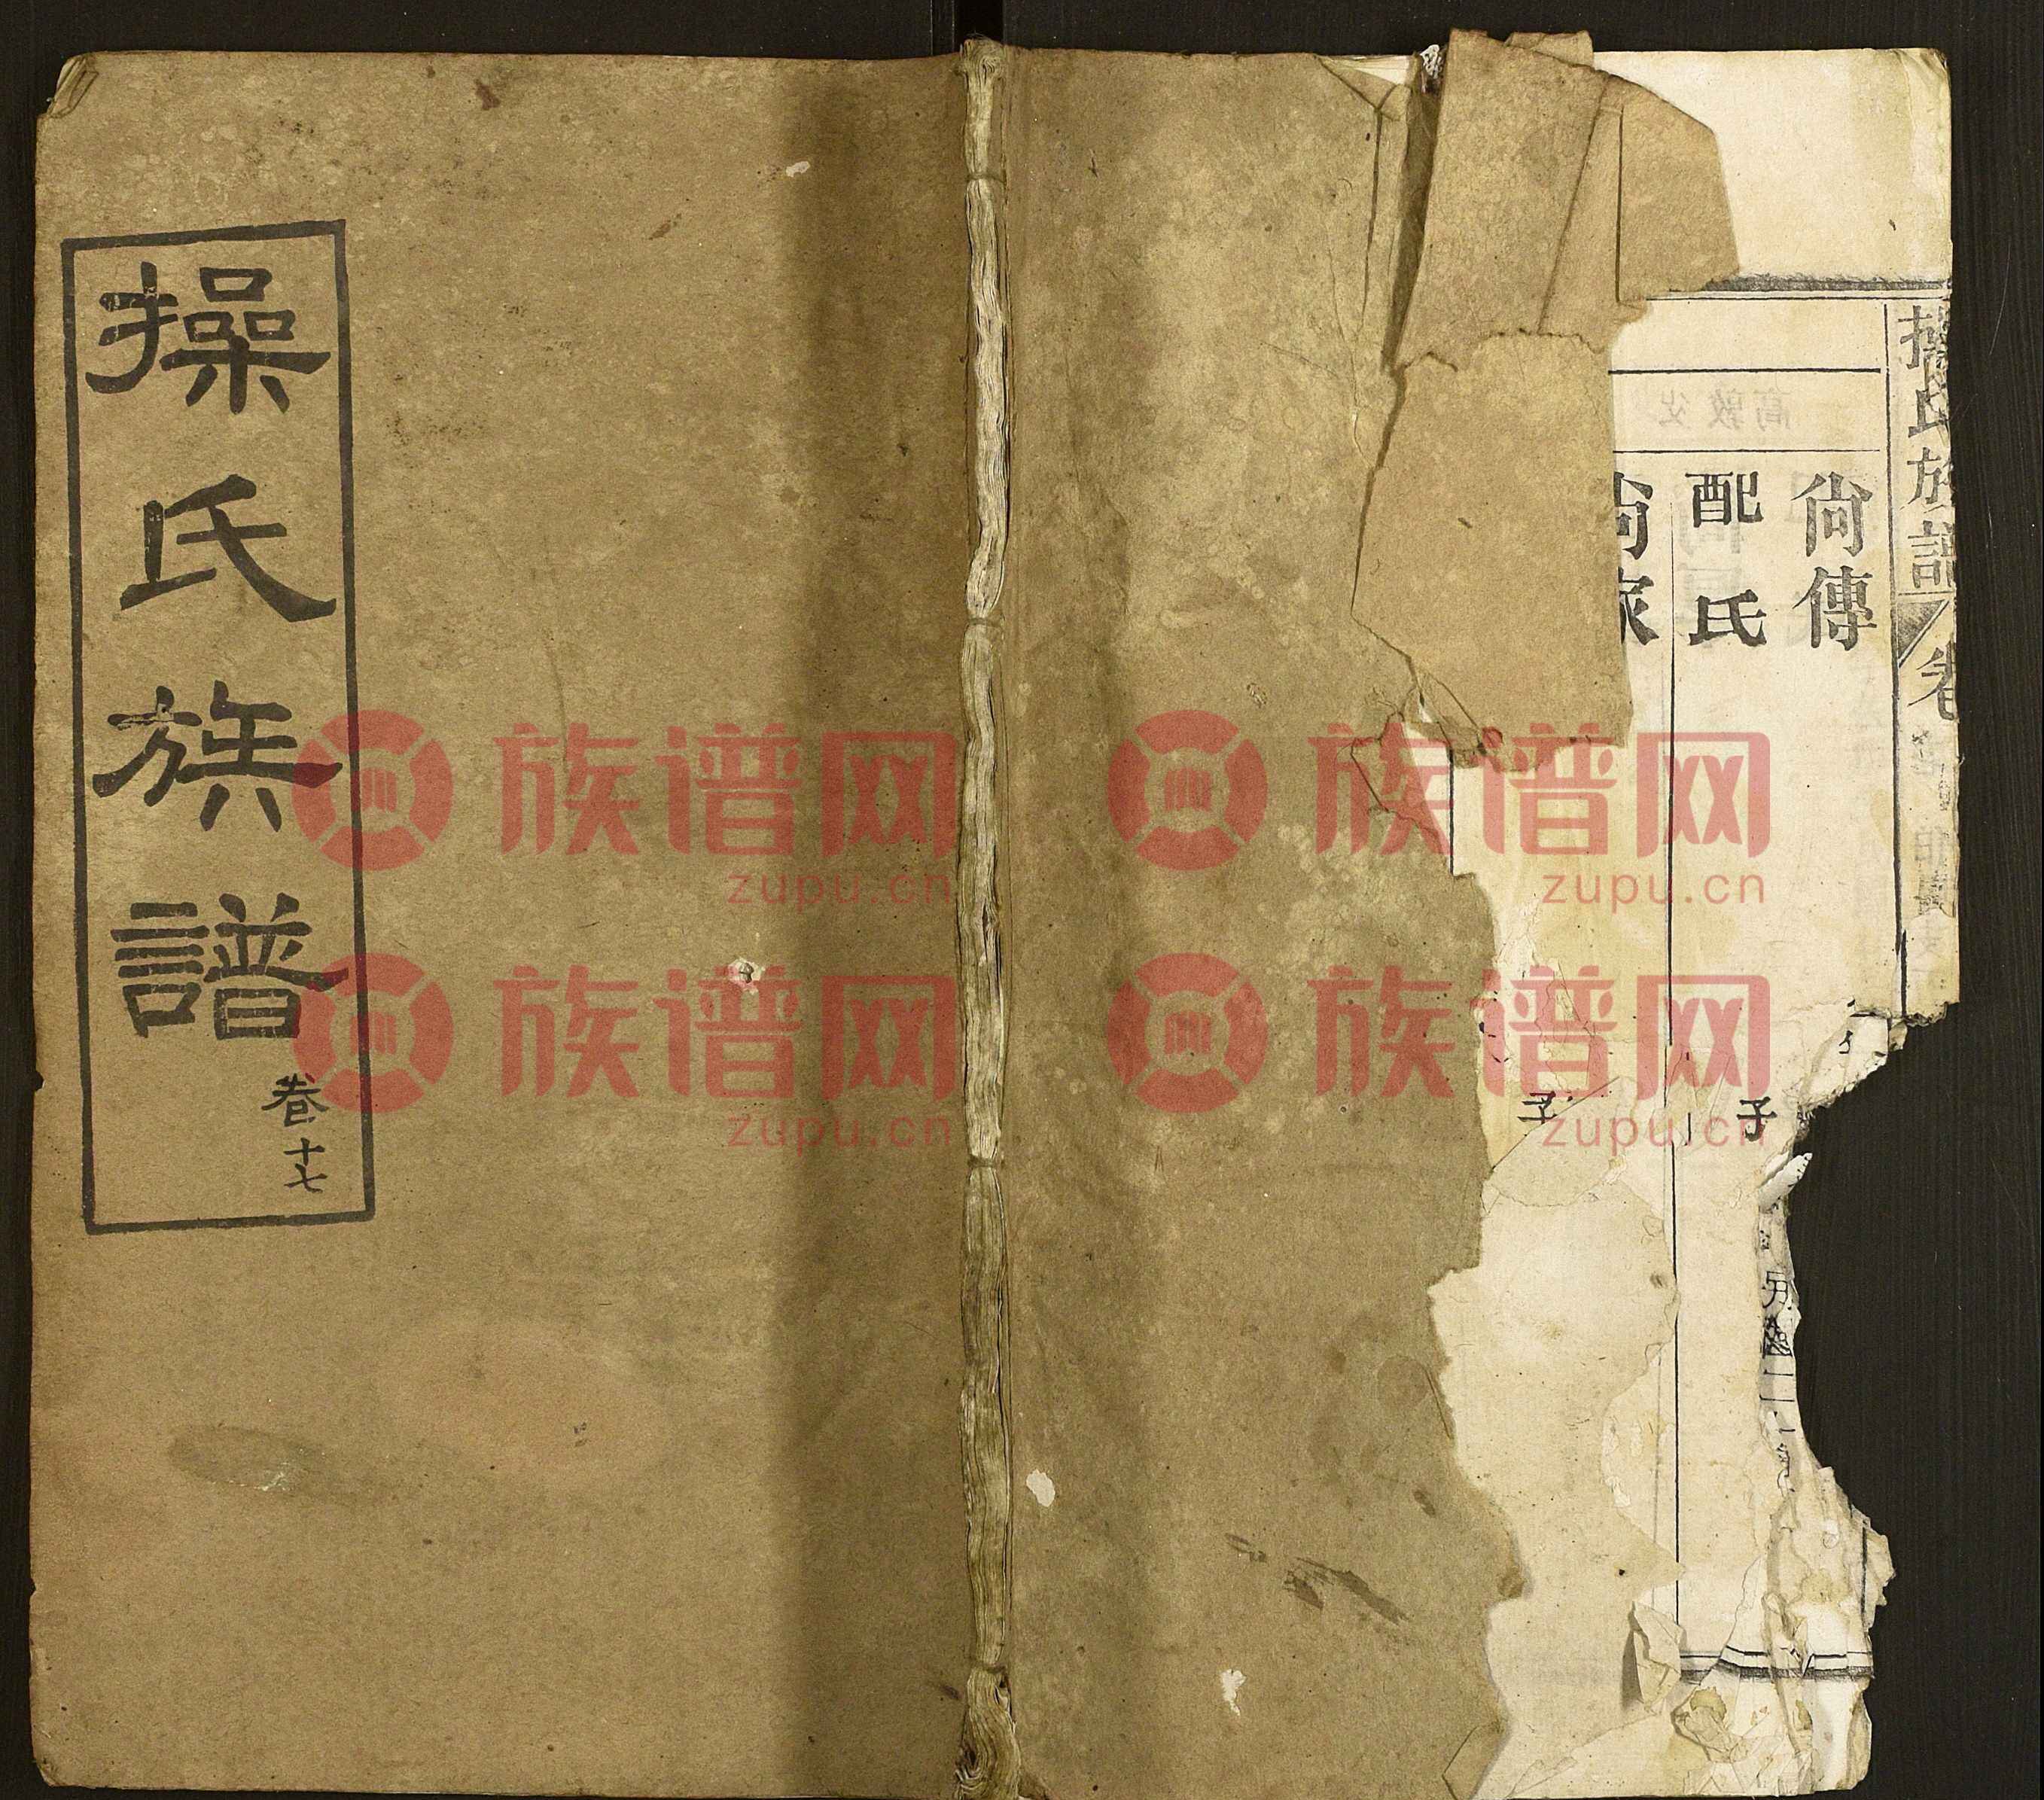 操氏族譜
卷十七
操氏族譜 卷
尙傳
子
配氏
子
族谱网
zupu.cn
族谱网
zupu.cn
族谱网
zupu.cn
族谱网
zupu.cn